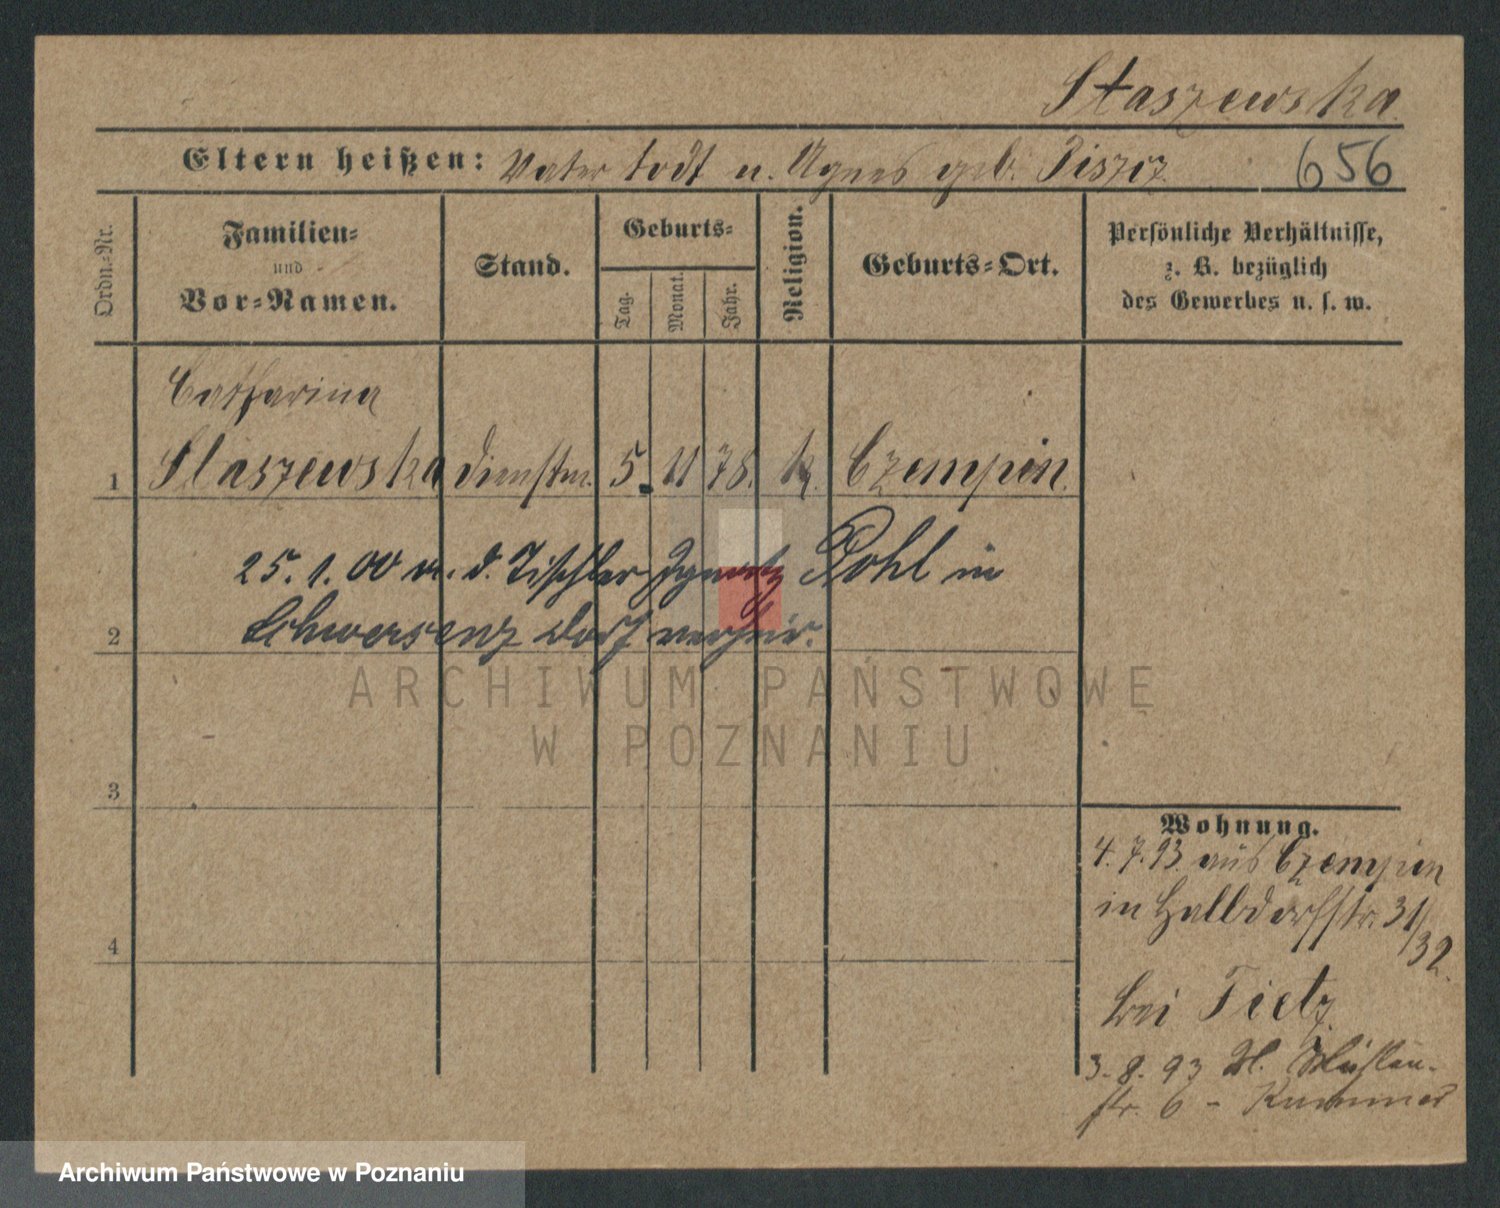 Staszewska
Eltern heißen: Vater todt u. Agnes geb. 656
Ordn.-Nr.
Familien-
und
Vor-Namen.
Stand.
Geburts-
Tag.
Monat.
Jahr.
Religion.
Geburts-Ort.
Persönliche Verhältnisse,
z. B. bezüglich
des Gewerbes u. s. w.
Catharina
1 Staszewska Dienstm. 5. 11 78. k. Czempin.
25. 1. 00 m. d. Tischler Ignatz Pohl in
2 Schwersenz Dorf verheir.
3
4
Wohnung.
4. 7. 93. aus Czempin
in Halbdorfstr. 31/
32.
bei Tietz
3. 8. 93 Mühlen-
str. 6 -
ARCHIWUM PAŃSTWOWE
W POZNANIU
Archiwum Państwowe w Poznaniu